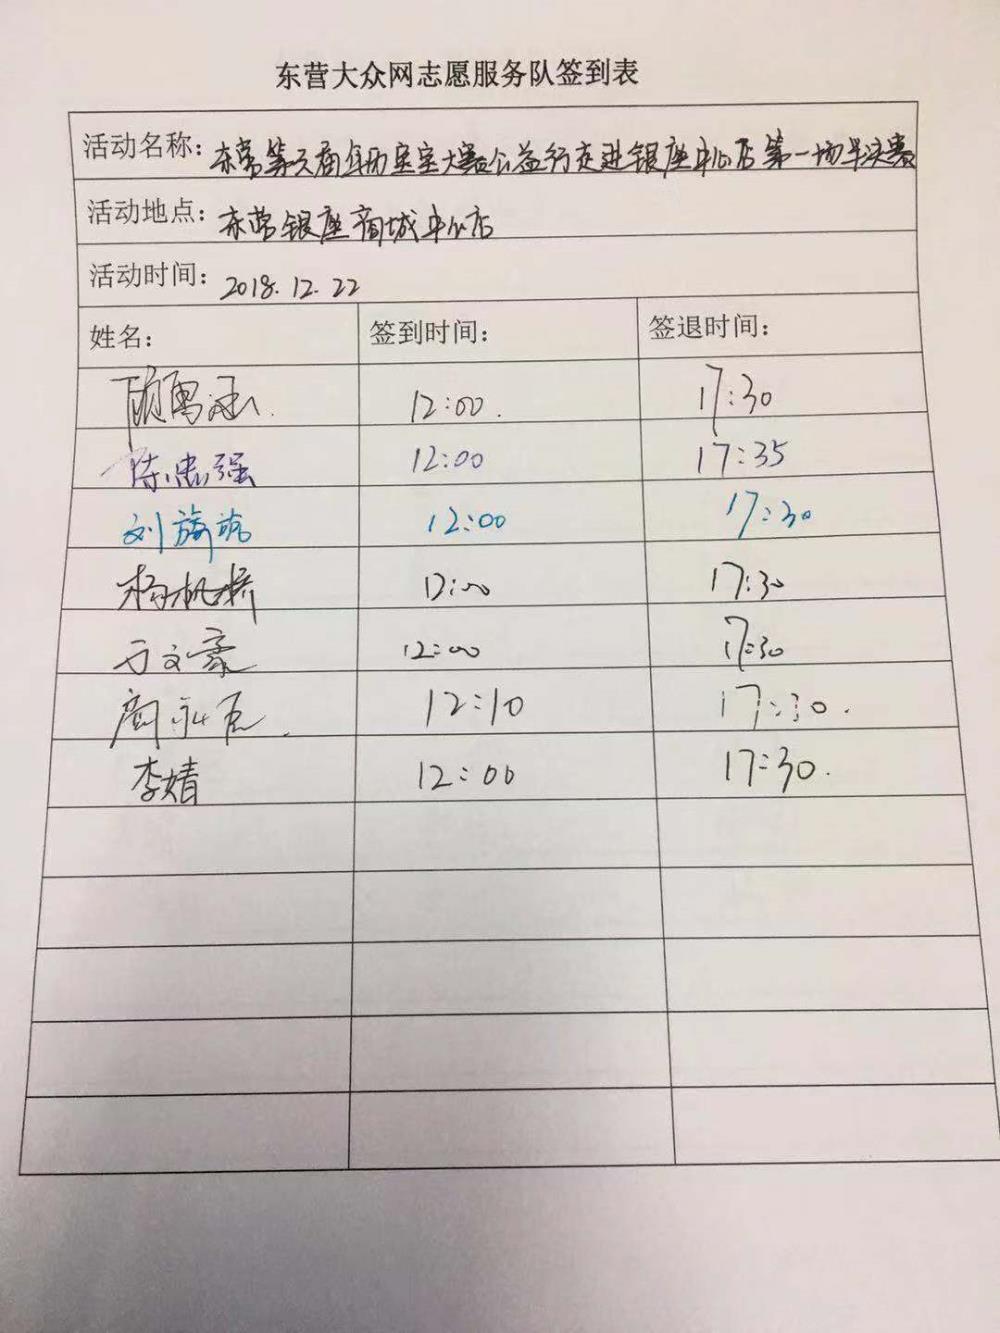 东营大众网志愿服务队签到表
活动名称: 东营第六届年画宝宝大赛公益行走进银座中心店第一场半决赛
活动地点: 东营银座商城中心店
活动时间: 2018.12.22
姓名: 签到时间: 签退时间:
12:00. 17:30
陈忠强 12:00 17:35
刘 12:00 17:30
杨 12:00 17:30
文豪 12:00 17:30
12:10 17:30.
李婧 12:00 17:30.